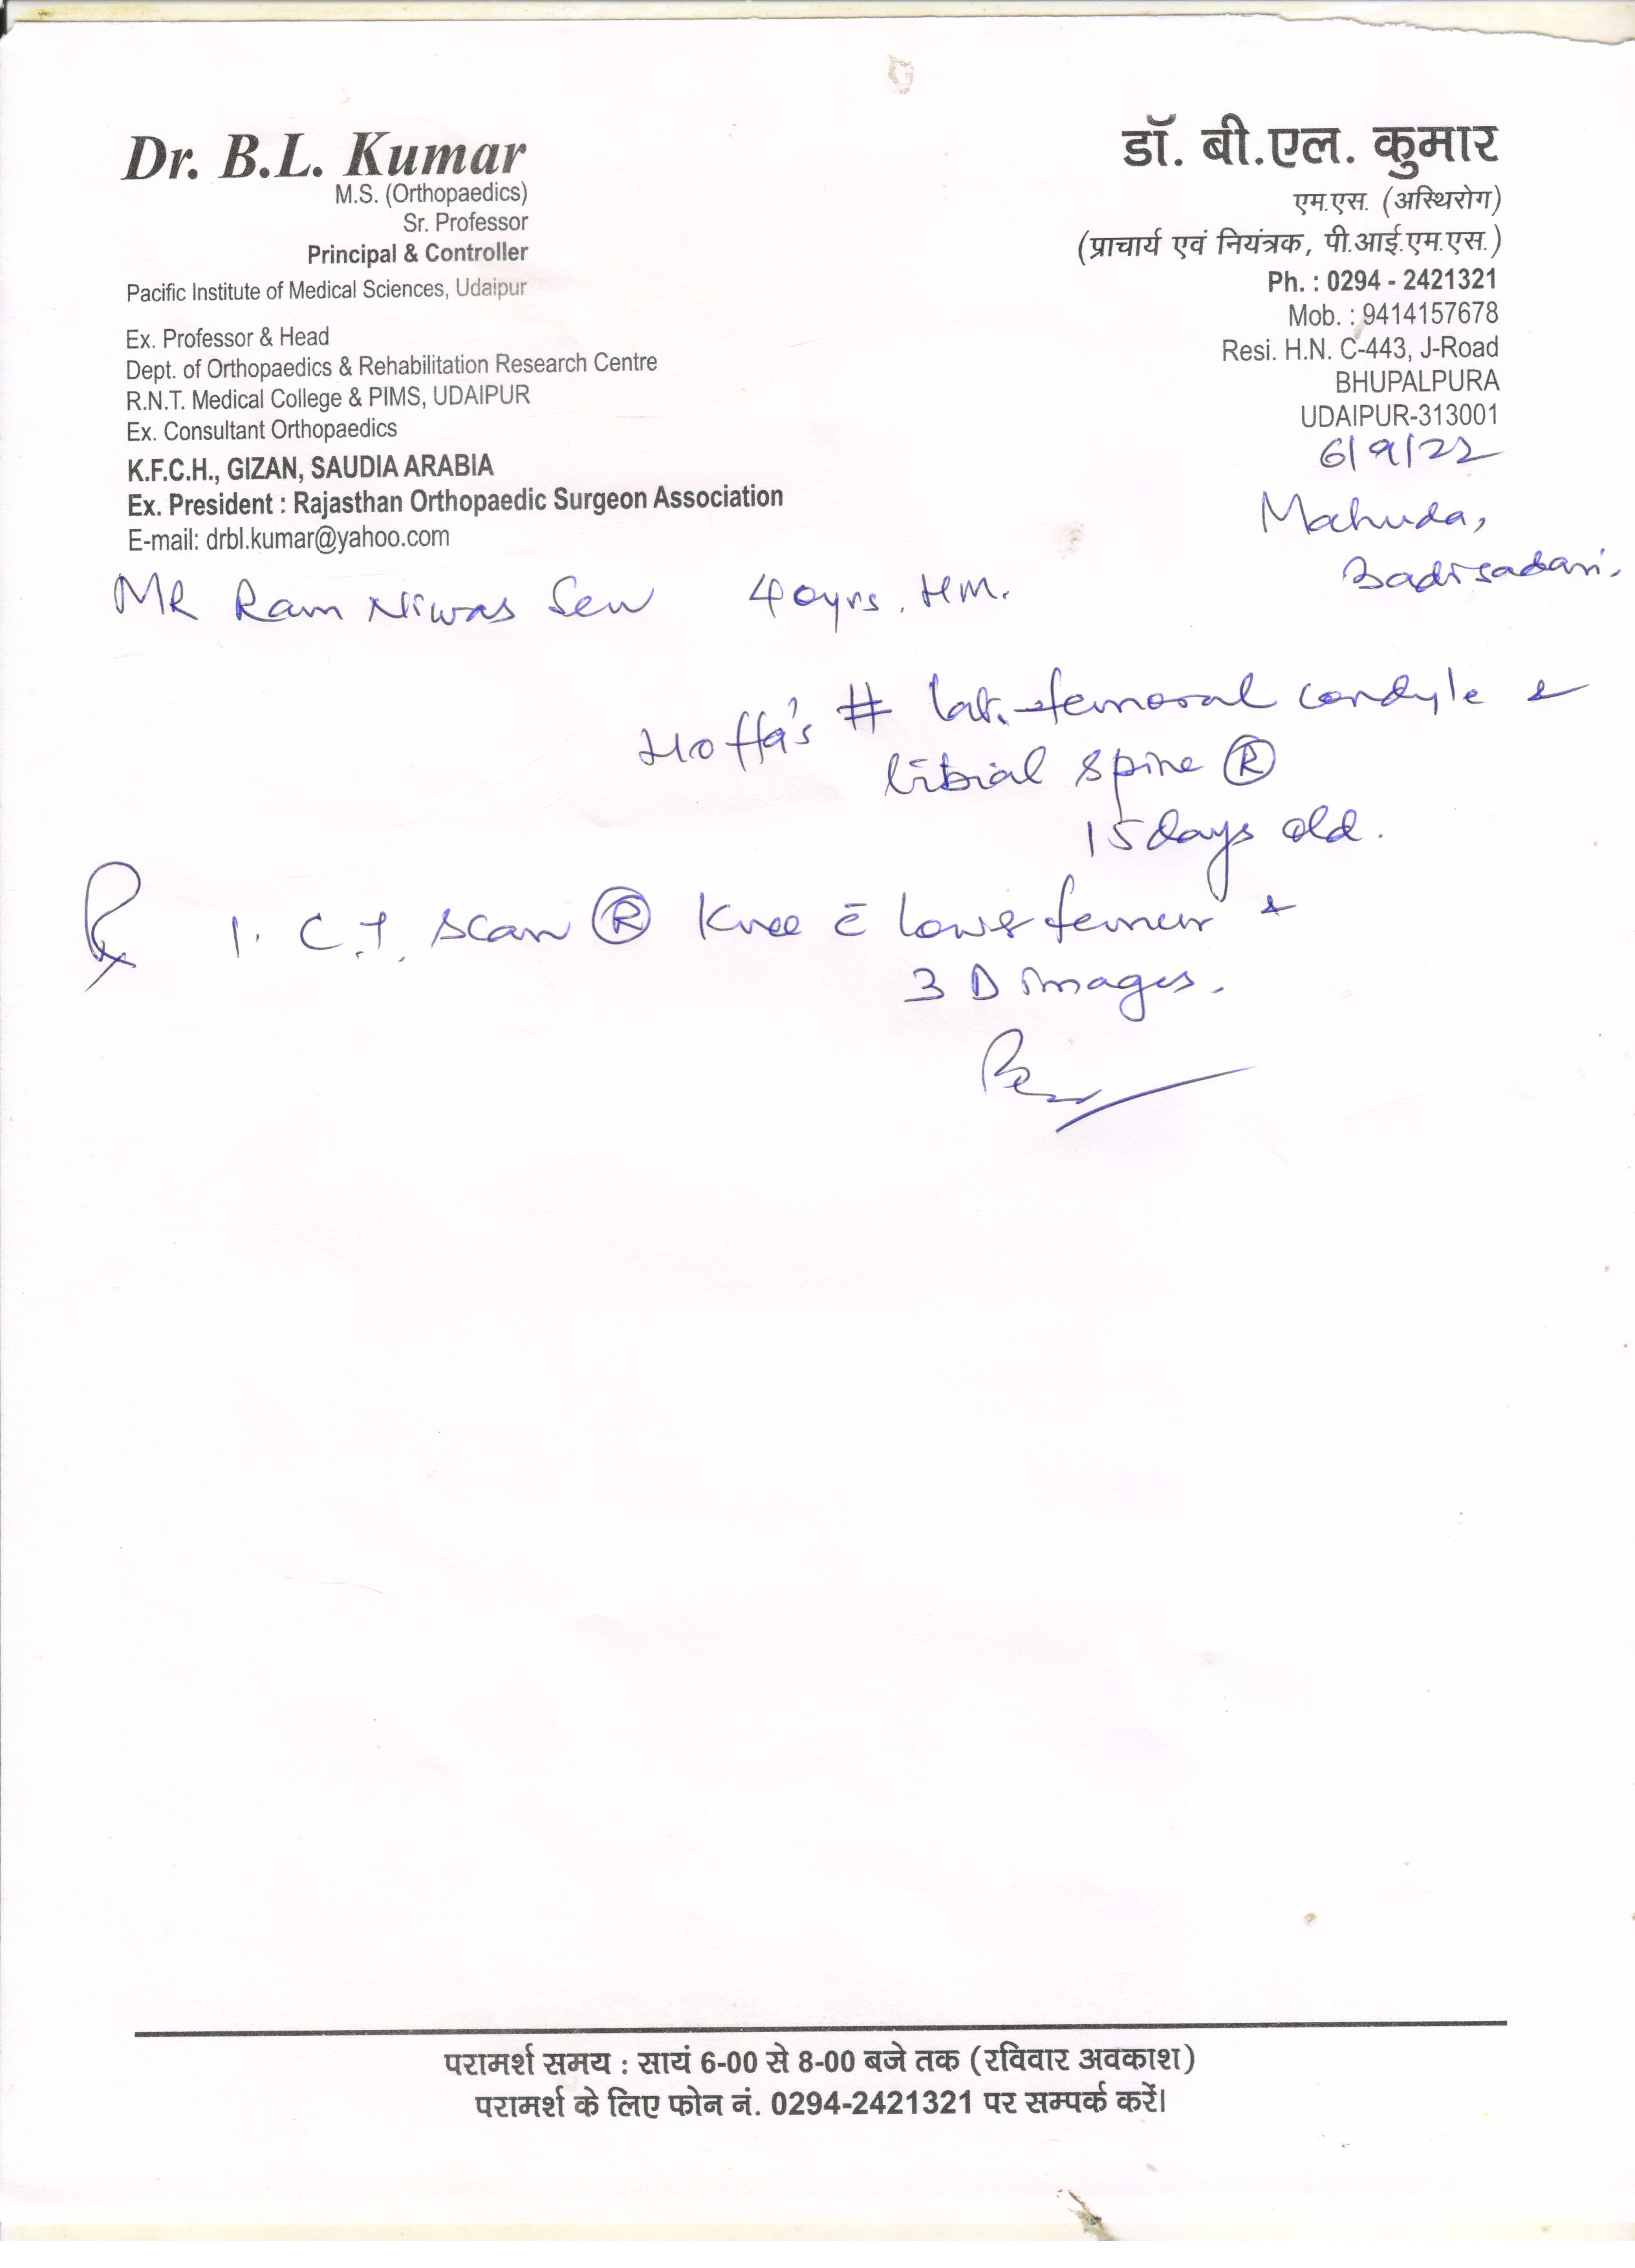 Dr. B.L. Kumar
M.S. (Orthopaedics)
Sr. Professor
Principal & Controller
Pacific Institute of Medical Sciences, Udaipur
Ex. Professor & Head
Dept. of Orthopaedics & Rehabilitation Research Centre
R.N.T. Medical College & PIMS, UDAIPUR
Ex. Consultant Orthopaedics
K.F.C.H., GIZAN, SAUDIA ARABIA
Ex. President : Rajasthan Orthopaedic Surgeon Association
E-mail: drbl.kumar@yahoo.com
डॉ. बी.एल. कुमार
एम.एस. (अस्थिरोग)
(प्राचार्य एवं नियंत्रक, पी.आई.एम.एस.)
Ph. : 0294 - 2421321
Mob. : 9414157678
Resi. H.N. C-443, J-Road
BHUPALPURA
UDAIPUR-313001
6/9/22
Mahuda,
Badisadari.
MR Ram Niwas Sen 40yrs. HM.
Hoffa's # lat. femoral condyle &
tibial spine Ⓡ
15 days old.
℞ 1. C.T. Scan Ⓡ Knee c̄ lower femur +
3 D images.
परामर्श समय : सायं 6-00 से 8-00 बजे तक (रविवार अवकाश)
परामर्श के लिए फोन नं. 0294-2421321 पर सम्पर्क करें।